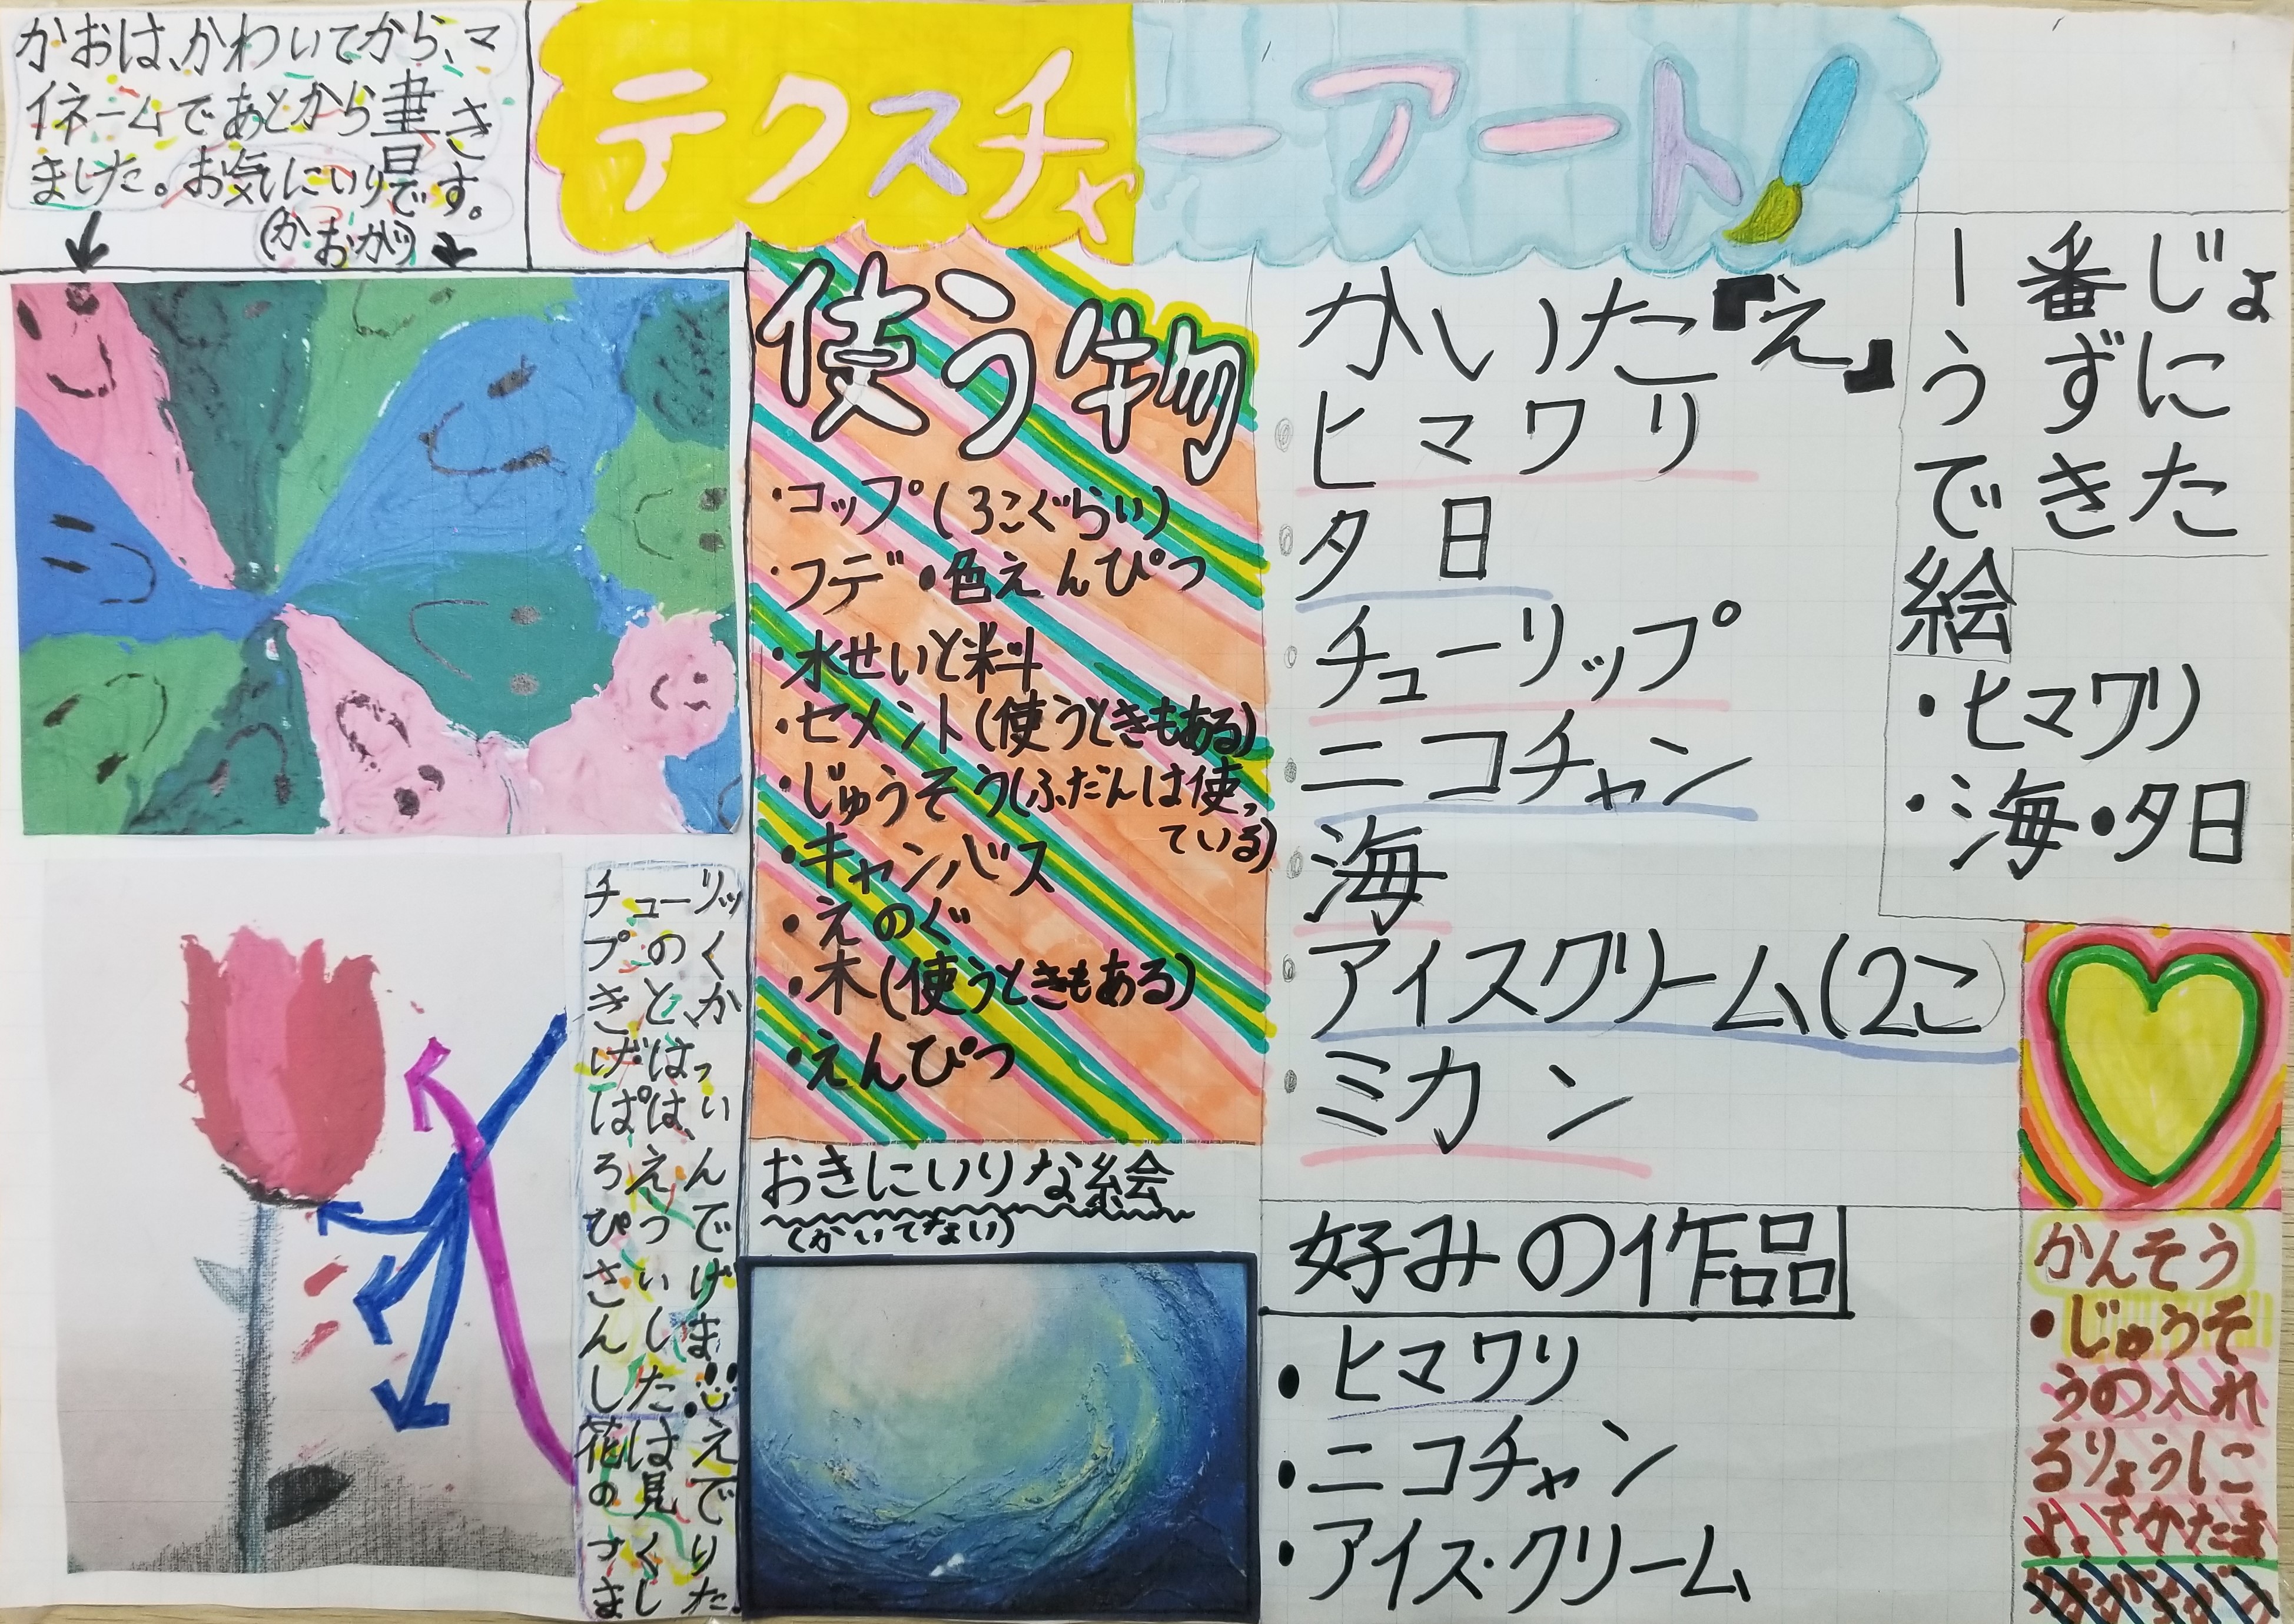 かおは、かわいてから、マ
イネームであとから書き
ました。お気にいりです。
(かおが)
テクスチャーアート
使う物
・コップ(3こぐらい)
・フデ・色えんぴつ
・水せいと料
・セメント(使うときもある)
・じゅうそう(ふだんは使っ
ている)
・キャンバス
・えのぐ
・木(使うときもある)
・えんぴつ
おきにいりな絵
(かいてない)
チューリッ
プのく
きとか
げはっ
ぱは、い
ろえん
ぴつで
さいげ
んしま
した.
花はえ
の見で
すくり
ました.
かいた『え』
ヒマワリ
夕日
チューリップ
ニコチャン
海
アイスクリーム(2こ)
ミカン
一番じょ
うずに
できた
絵
・ヒマワリ
・海・夕日
好みの作品
・ヒマワリ
・ニコチャン
・アイス・クリーム
かんそう
・じゅうそ
うの入れ
るりょうに
よってかたま